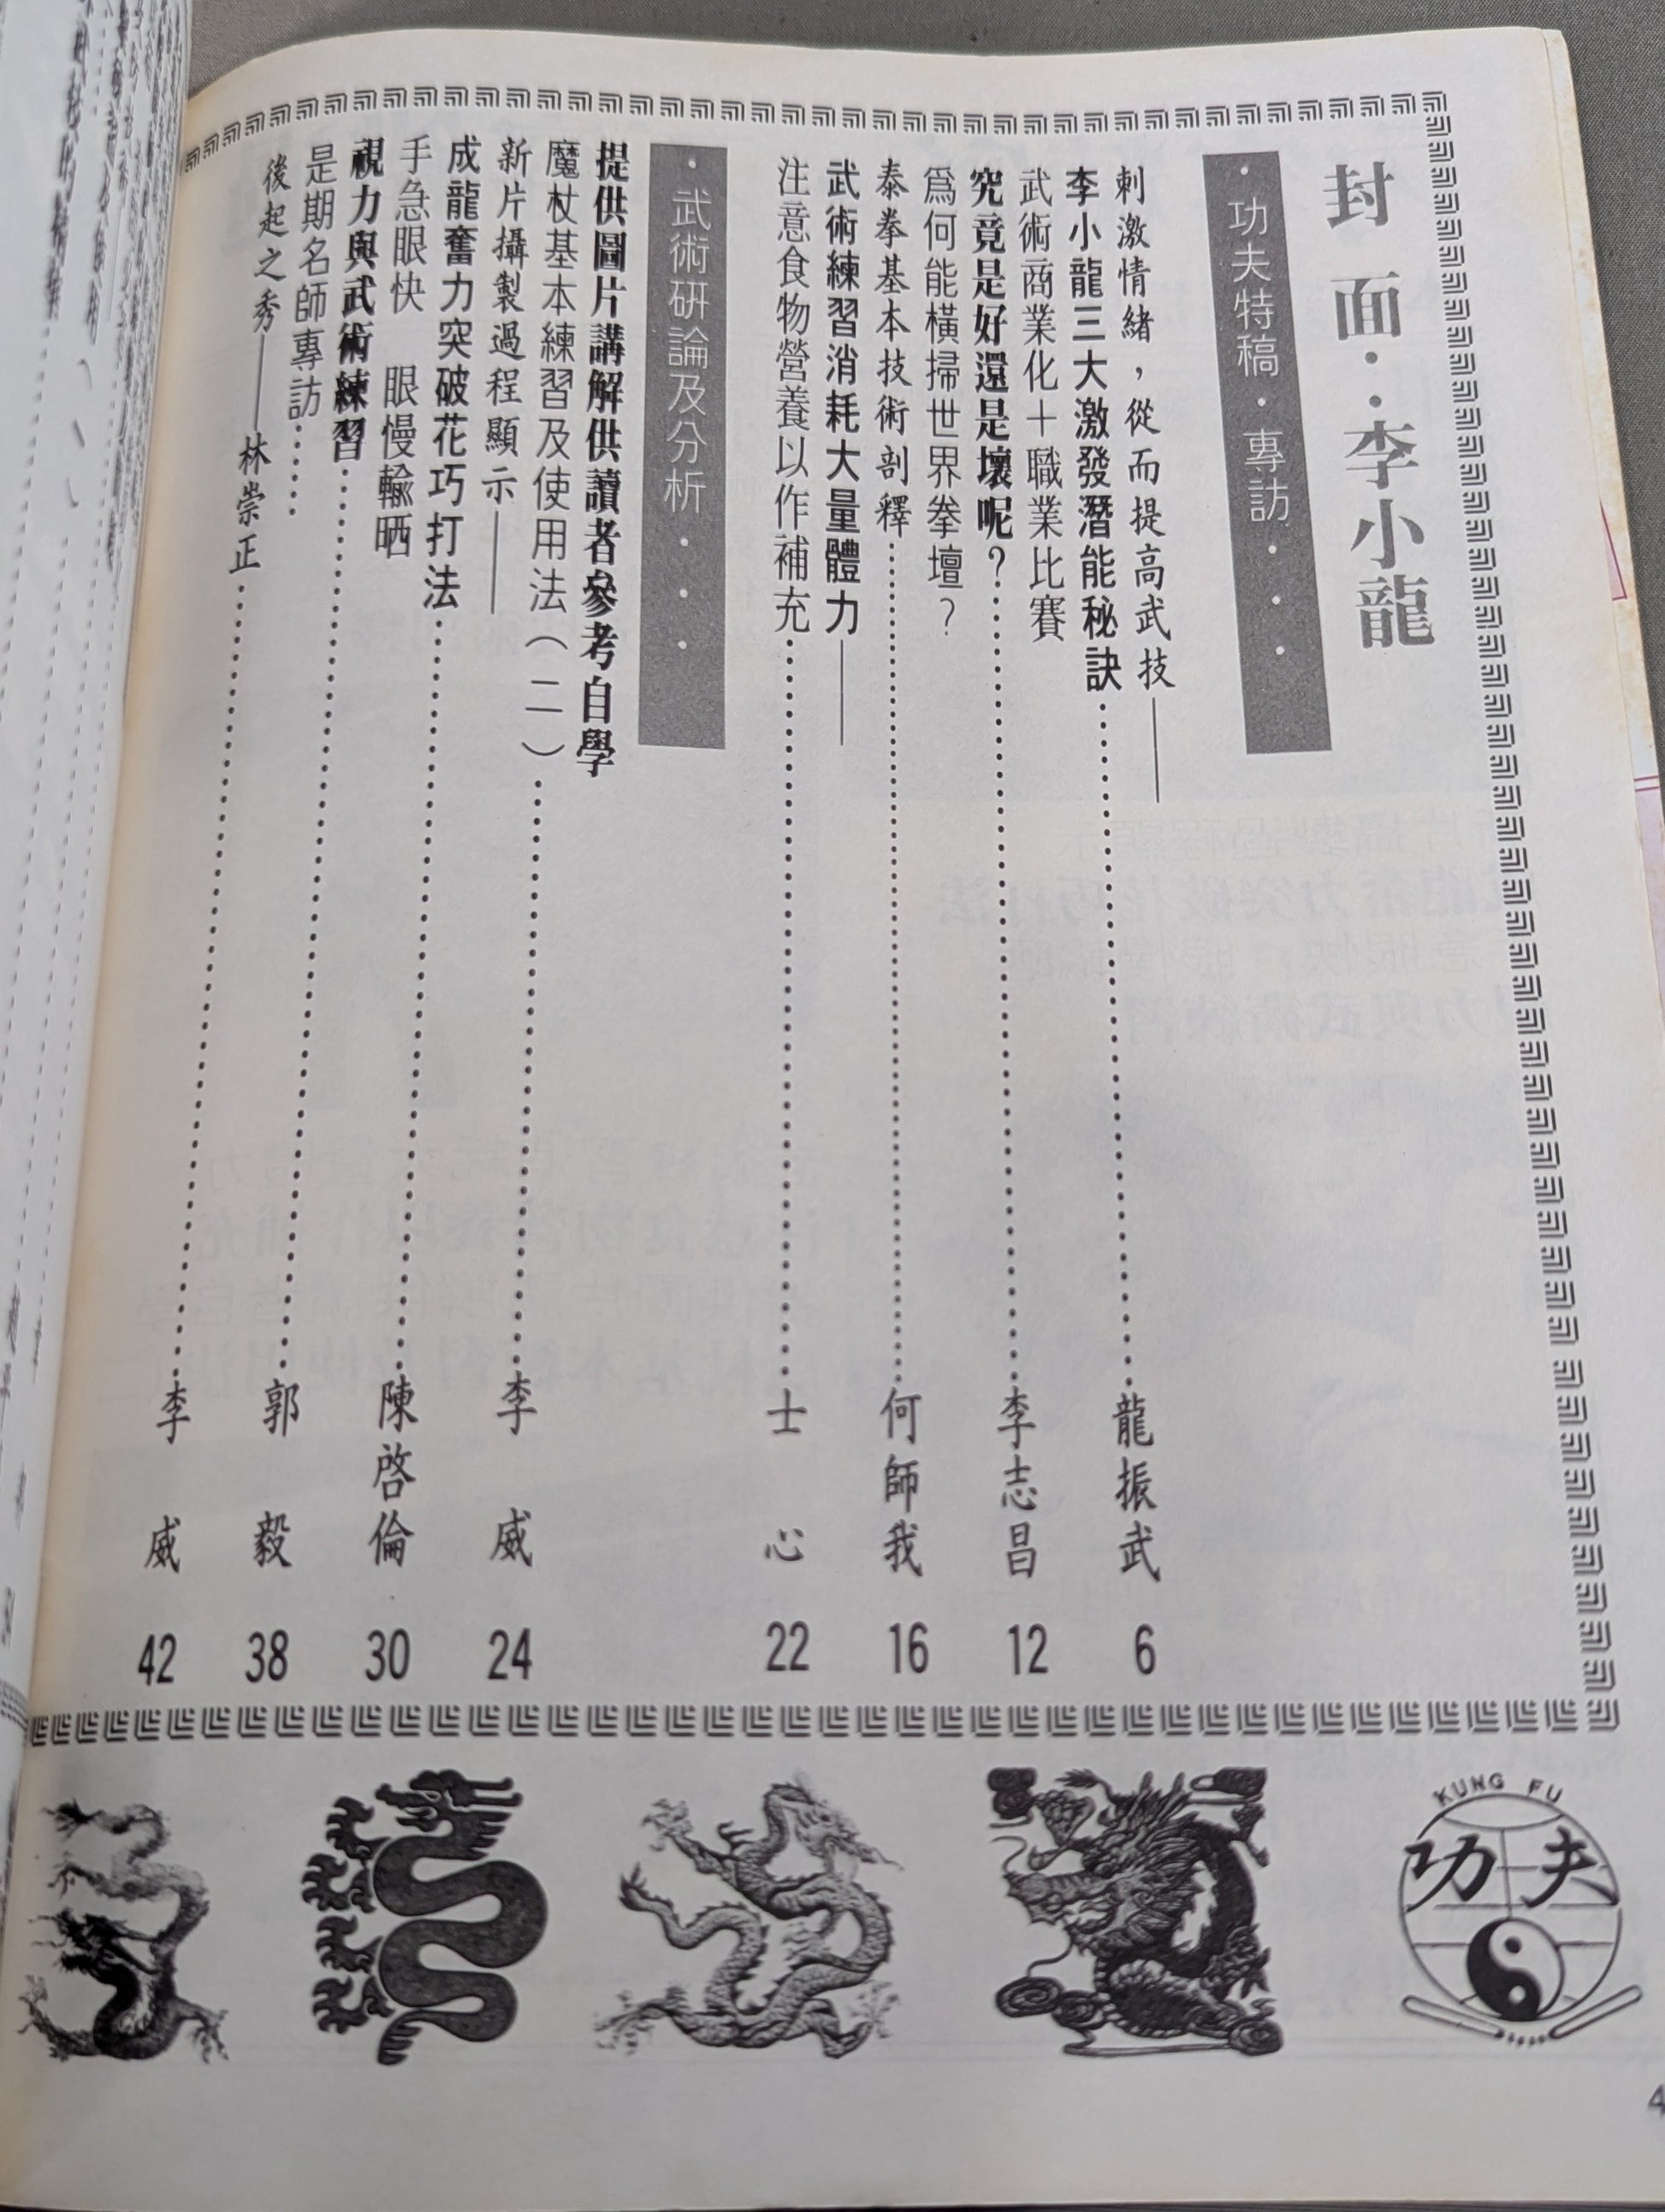 封面：李小龍
·功夫特稿·專訪···
刺激情緒，從而提高武技——
李小龍三大激發潛能秘訣……龍振武 6
武術商業化＋職業比賽
究竟是好還是壞呢？……李志昌 12
爲何能橫掃世界拳壇？
泰拳基本技術剖釋……何師我 16
武術練習消耗大量體力——
注意食物營養以作補充……士心 22
·武術研論及分析···
提供圖片講解供讀者參考自學
魔杖基本練習及使用法（二）……李威 24
新片攝製過程顯示——
成龍奮力突破花巧打法……陳啓倫 30
手急眼快 眼慢輸晒
視力與武術練習……郭毅 38
是期名師專訪……
後起之秀——林崇正……李威 42
KUNG FU
功夫
4